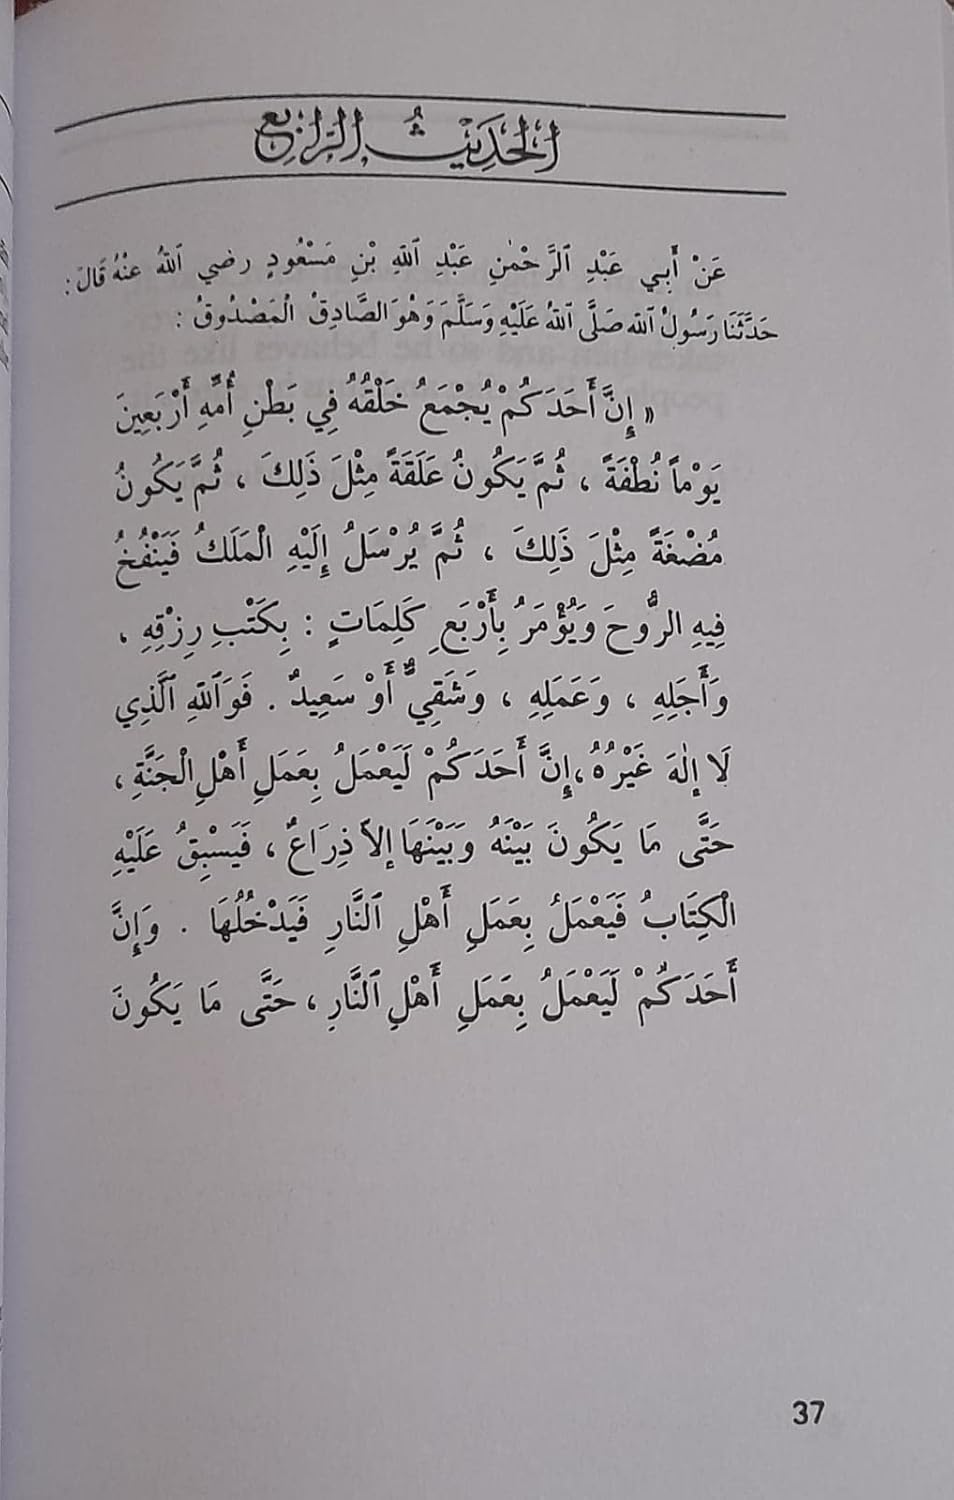 الحَدِيثُ الرَّابِع
عَنْ أَبِي عَبْدِ ٱلرَّحْمٰنِ عَبْدِ ٱللهِ بْنِ مَسْعُودٍ رضي ٱللهُ عَنْهُ قَالَ :
حَدَّثَنَا رَسُولُ ٱللهِ صَلَّى ٱللهُ عَلَيْهِ وَسَلَّمَ وَهُوَ الصَّادِقُ الْمَصْدُوقُ :
« إِنَّ أَحَدَكُمْ يُجْمَعُ خَلْقُهُ فِي بَطْنِ أُمِّهِ أَرْبَعِينَ
يَوْماً نُطْفَةً ، ثُمَّ يَكُونُ عَلَقَةً مِثْلَ ذَلِكَ ، ثُمَّ يَكُونُ
مُضْغَةً مِثْلَ ذَلِكَ ، ثُمَّ يُرْسَلُ إِلَيْهِ الْمَلَكُ فَيَنْفُخُ
فِيهِ الرُّوحَ وَيُؤْمَرُ بِأَرْبَعِ كَلِمَاتٍ : بِكَتْبِ رِزْقِهِ ،
وَأَجَلِهِ ، وَعَمَلِهِ ، وَشَقِيٌّ أَوْ سَعِيدٌ . فَوَٱللهِ ٱلَّذِي
لَا إِلٰهَ غَيْرُهُ ،إِنَّ أَحَدَكُمْ لَيَعْمَلُ بِعَمَلِ أَهْلِ الْجَنَّةِ ،
حَتَّى مَا يَكُونَ بَيْنَهُ وَبَيْنَهَا إلاَّ ذِرَاعٌ ، فَيَسْبِقُ عَلَيْهِ
الْكِتَابُ فَيَعْمَلُ بِعَمَلِ أَهْلِ ٱلنَّارِ فَيَدْخُلُهَا . وَإِنَّ
أَحَدَكُمْ لَيَعْمَلُ بِعَمَلِ أَهْلِ ٱلنَّارِ ، حَتَّى مَا يَكُونَ
37